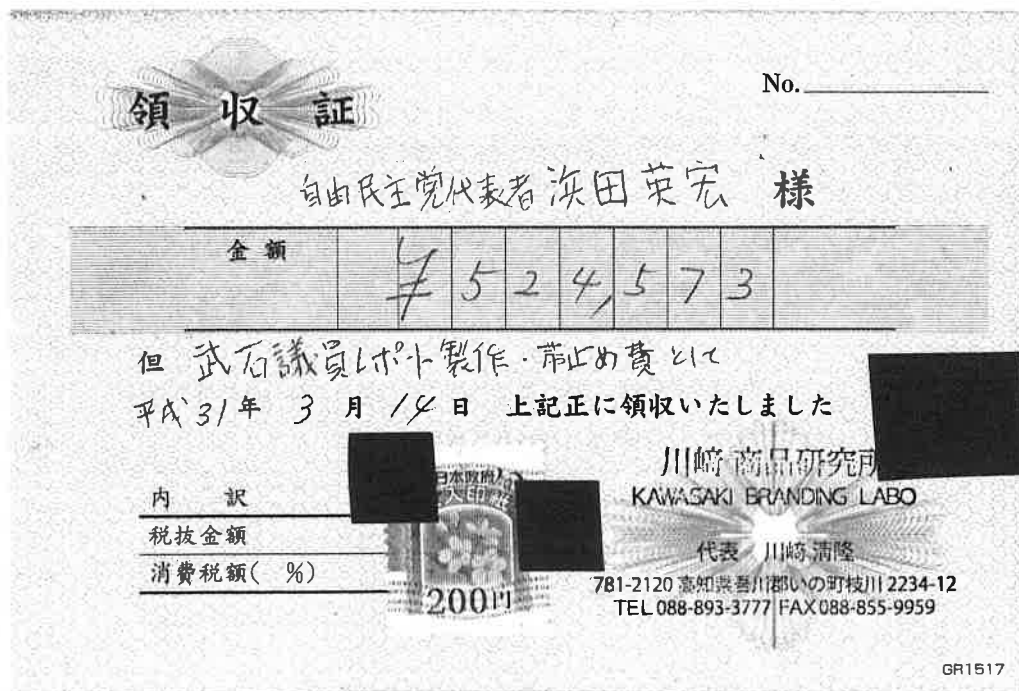 領収証
No.
自由民主党代表者 浜田英宏 様
金額 ¥524,573
但 武石議員レポート製作・帯止め費として
平成31年 3月14日 上記正に領収いたしました
内訳
税抜金額
消費税額( %)
日本政府
200円
川﨑商品研究所
KAWASAKI BRANDING LABO
代表 川﨑清隆
781-2120 高知県吾川郡いの町枝川 2234-12
TEL 088-893-3777 FAX 088-855-9959
GR1517